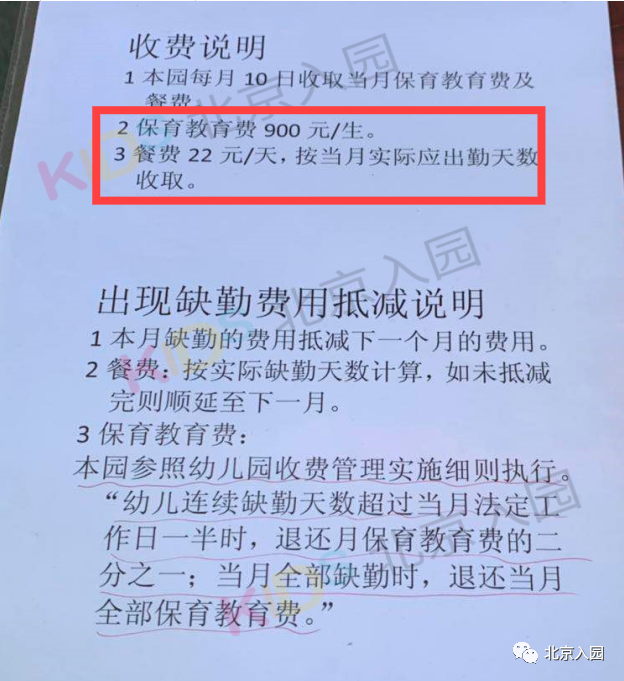 收费说明
1 本园每月 10 日收取当月保育教育费及
餐费
2 保育教育费 900 元/生。
3 餐费 22 元/天，按当月实际应出勤天数
收取。
出现缺勤费用抵减说明
1 本月缺勤的费用抵减下一个月的费用。
2 餐费：按实际缺勤天数计算，如未抵减
完则顺延至下一月。
3 保育教育费：
本园参照幼儿园收费管理实施细则执行。
“幼儿连续缺勤天数超过当月法定工
作日一半时，退还月保育教育费的二
分之一；当月全部缺勤时，退还当月
全部保育教育费。”
KIDS 北京入园
KIDS 北京入园
KIDS 北京入园
北京入园